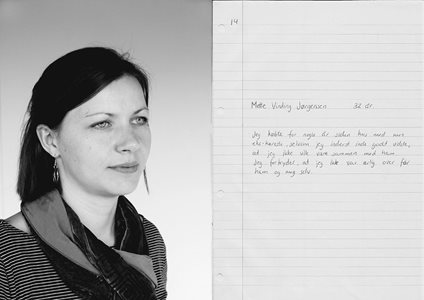 14
Mette Vinding Jørgensen 32 år
Jeg købte for nogle år siden hus med min
eks-kæreste, selvom jeg inderst inde godt vidste,
at jeg ikke ville være sammen med ham.
Jeg fortryder, at jeg ikke var ærlig over for
ham og mig selv.